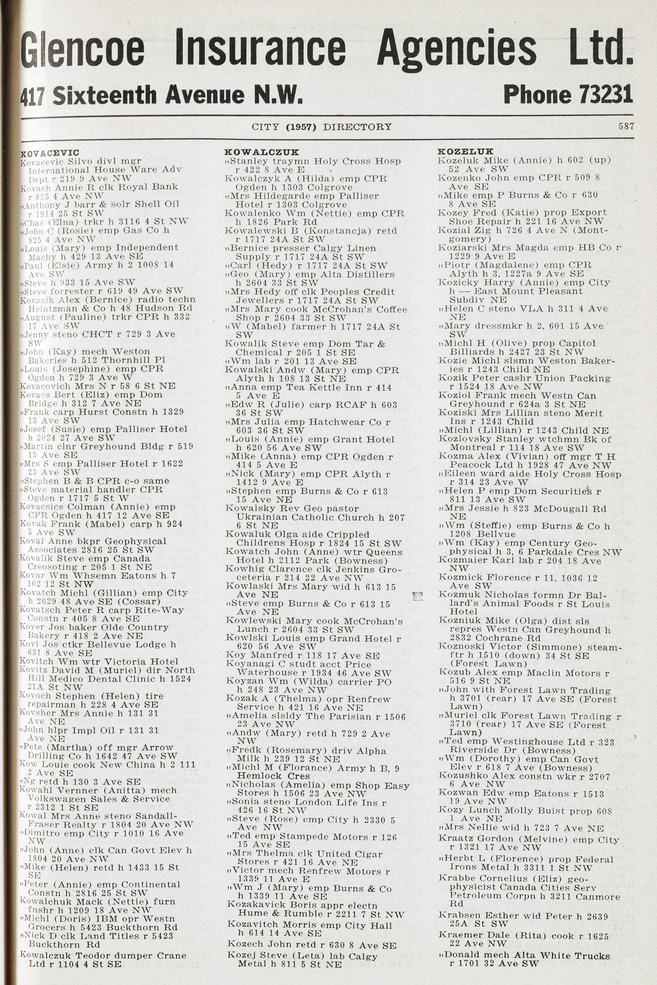 Glencoe Insurance Agencies Ltd.
417 Sixteenth Avenue N.W. Phone 73231
CITY (1957) DIRECTORY 587
KOVACEVIC
Kovacevic Silvo divl mgr
International House Ware Adv
Dept r 219 9 Ave NW
Kovach Annie R clk Royal Bank
r 825 4 Ave NW
„Anthony J barr & solr Shell Oil
r 1914 25 St SW
„Chas (Edna) trkr h 3116 4 St NW
„John C (Rosie) emp Gas Co h
825 4 Ave NW
„Louis (Mary) emp Independent
Machy h 429 13 Ave SE
„Paul (Elsie) Army h 2 1008 14
Ave SW
„Steve h 933 15 Ave SW
„Steve forrester r 619 49 Ave SW
Kovacik Alex (Bernice) radio techn
Heintzman & Co h 48 Hudson Rd
„August (Pauline) trkr CPR h 332
17 Ave SW
„Jenny steno CHCT r 729 3 Ave
SW
„John (Kay) mech Weston
Bakeries h 512 Thornhill Pl
„Louis (Josephine) emp CPR
Ogden h 729 3 Ave W
Kovacovich Mrs N r 58 6 St NE
Kovacs Bert (Eliz) emp Dom
Bridge h 312 7 Ave NE
„Frank carp Hurst Constn h 1329
13 Ave SW
„Josef (Susie) emp Palliser Hotel
h 2024 27 Ave SW
„Martin clnr Greyhound Bldg r 519
13 Ave SE
„Mrs S emp Palliser Hotel r 1622
23 Ave SW
„Stephen B & B CPR c-o same
„Steve material handler CPR
Ogden r 1717 5 St W
Kovacsics Colman (Annie) emp
CPR Ogden h 417 12 Ave SE
Kovak Frank (Mabel) carp h 924
5 Ave SW
Koval Anne bkpr Geophysical
Associates 2816 25 St SW
Kovalik Steve emp Canada
Creosoting r 205 1 St NE
Kovar Wm Whsemn Eatons h 7
102 12 St NW
Kovatch Michl (Gillian) emp City
h 2629 48 Ave SE (Cossar)
Kovatsch Peter R carp Rite-Way
Constn r 405 8 Ave SE
Kover Jos baker Olde Country
Bakery r 418 2 Ave NE
Kovi Jos ctkr Bellevue Lodge h
631 8 Ave SE
Kovitch Wm wtr Victoria Hotel
Kovitz David M (Muriel) dir North
Hill Medico Dental Clinic h 1524
21A St NW
Kovoch Stephen (Helen) tire
repairman h 228 4 Ave SE
Kovsher Mrs Annie h 131 31
Ave NE
„John hlpr Impl Oil r 131 31
Ave NE
„Pete (Martha) off mgr Arrow
Drilling Co h 1642 47 Ave SW
Kow Louie cook New China h 2 111
2 Ave SE
„Ng retd h 130 3 Ave SE
Kowahl Vernner (Anitta) mech
Volkswagen Sales & Service
r 2312 1 St SE
Kowal Mrs Anne steno Sandall-
Fraser Realty r 1804 20 Ave NW
„Dimitro emp City r 1010 16 Ave
NW
„John (Anne) clk Can Govt Elev h
1804 20 Ave NW
„Mike (Helen) retd h 1433 15 St
SE
„Peter (Annie) emp Continental
Constn h 2816 25 St SW
Kowalchuk Mack (Nettie) furn
fnshr h 1209 18 Ave NW
„Michl (Doris) IBM opr Westn
Grocers h 5423 Buckthorn Rd
„Nick D clk Land Titles r 5423
Buckthorn Rd
Kowalczuk Teodor dumper Crane
Ltd r 1104 4 St SE
KOWALCZUK
„Stanley traymn Holy Cross Hosp
r 422 8 Ave E
Kowalczyk A (Hilda) emp CPR
Ogden h 1303 Colgrove
„Mrs Hildegarde emp Palliser
Hotel r 1303 Colgrove
Kowalenko Wm (Nettie) emp CPR
h 1826 Park Rd
Kowalewski B (Konstancja) retd
r 1717 24A St SW
„Bernice presser Calgy Linen
Supply r 1717 24A St SW
„Carl (Hedy) r 1717 24A St SW
„Geo (Mary) emp Alta Distillers
h 2604 33 St SW
„Mrs Hedy off clk Peoples Credit
Jewellers r 1717 24A St SW
„Mrs Mary cook McCrohan's Coffee
Shop r 2604 33 St SW
„W (Mabel) farmer h 1717 24A St
SW
Kowalik Steve emp Dom Tar &
Chemical r 205 1 St SE
„Wm lab r 201 13 Ave SE
Kowalski Andw (Mary) emp CPR
Alyth h 108 13 St NE
„Anna emp Tea Kettle Inn r 414
5 Ave E
„Edw R (Julie) carp RCAF h 603
36 St SW
„Mrs Julia emp Hatchwear Co r
603 36 St SW
„Louis (Annie) emp Grant Hotel
h 620 56 Ave SW
„Mike (Anna) emp CPR Ogden r
414 5 Ave E
„Nick (Mary) emp CPR Alyth r
1412 9 Ave E
„Stephen emp Burns & Co r 613
15 Ave NE
Kowalsky Rev Geo pastor
Ukrainian Catholic Church h 207
6 St NE
Kowaluk Olga aide Crippled
Childrens Hosp r 1824 15 St SW
Kowatch John (Anne) wtr Queens
Hotel h 2112 Park (Bowness)
Kowhig Clarence clk Jenkins Gro-
ceteria r 214 22 Ave NW
Kowlaski Mrs Mary wid h 613 15
Ave NE
„Steve emp Burns & Co r 613 15
Ave NE
Kowlewski Mary cook McCrohan's
Lunch r 2604 33 St SW
Kowlski Louis emp Grand Hotel r
620 56 Ave SW
Koy Manfred r 118 17 Ave SE
Koyanagi C studt acct Price
Waterhouse r 1934 46 Ave SW
Koyzan Wm (Wilda) carrier PO
h 248 23 Ave NW
Kozak A (Thelma) opr Renfrew
Service h 421 16 Ave NE
„Amelia slsldy The Parisian r 1506
23 Ave NW
„Andw (Mary) retd h 729 2 Ave
NW
„Fredk (Rosemary) driv Alpha
Milk h 239 12 St NE
„Michl M (Florance) Army h B, 9
Hemlock Cres
„Nicholas (Amelia) emp Shop Easy
Stores h 1506 23 Ave NW
„Sonia steno London Life Ins r
426 16 St NW
„Steve (Rose) emp City h 2330 5
Ave NW
„Ted emp Stampede Motors r 126
15 Ave SE
„Mrs Thelma clk United Cigar
Stores r 421 16 Ave NE
„Victor mech Renfrew Motors r
1339 11 Ave E
„Wm J (Mary) emp Burns & Co
h 1339 11 Ave SE
Kozakavick Boris appr electn
Hume & Rumble r 2211 7 St NW
Kozavitch Morris emp City Hall
h 614 14 Ave SE
Kozech John retd r 630 8 Ave SE
Kozej Steve (Leta) lab Calgy
Metal h 811 5 St NE
KOZELUK
Kozeluk Mike (Annie) h 602 (up)
52 Ave SW
Kozenko John emp CPR r 509 8
Ave SE
„Mike emp P Burns & Co r 630
8 Ave SE
Kozey Fred (Katie) prop Export
Shoe Repair h 221 16 Ave NW
Kozial Zig h 726 4 Ave N (Mont-
gomery)
Koziarski Mrs Magda emp HB Co r
1229 9 Ave E
„Piotr (Magdalene) emp CPR
Alyth h 3, 1227a 9 Ave SE
Kozicky Harry (Annie) emp City
h — East Mount Pleasant
Subdiv NE
„Helen C steno VLA h 311 4 Ave
NE
„Mary dressmkr h 2, 601 15 Ave
SW
„Michl H (Olive) prop Capitol
Billiards h 2427 23 St NW
Kozie Michl slsmn Weston Baker-
ies r 1243 Child NE
Kozik Peter cashr Union Packing
r 1524 18 Ave NW
Koziol Frank mech Westn Can
Greyhound r 624a 3 St NE
Koziski Mrs Lillian steno Merit
Ins r 1243 Child
„Michl (Lillian) r 1243 Child NE
Kozlovsky Stanley wtchmn Bk of
Montreal r 114 18 Ave SW
Kozma Alex (Vivian) off mgr T H
Peacock Ltd h 1928 47 Ave NW
„Eileen ward aide Holy Cross Hosp
r 314 23 Ave W
„Helen P emp Dom Securities r
811 13 Ave SW
„Mrs Jessie h 823 McDougall Rd
NE
„Wm (Steffie) emp Burns & Co h
1208 Bellvue
„Wm (Kay) emp Century Geo-
physical h 3, 6 Parkdale Cres NW
Kozmaier Karl lab r 204 18 Ave
NW
Kozmick Florence r 11, 1036 12
Ave SW
Kozmuk Nicholas formn Dr Bal-
lard's Animal Foods r St Louis
Hotel
Kozniuk Mike (Olga) dist sls
repres Westn Can Greyhound h
2832 Cochrane Rd
Koznoski Victor (Simmone) steam-
ftr h 1510 (down) 34 St SE
(Forest Lawn)
Kozub Alex emp Maclin Motors r
516 9 St NE
„John with Forest Lawn Trading
h 3701 (rear) 17 Ave SE (Forest
Lawn)
„Muriel clk Forest Lawn Trading r
3710 (rear) 17 Ave SE (Forest
Lawn)
„Ted emp Westinghouse Ltd r 323
Riverside Dr (Bowness)
„Wm (Dorothy) emp Can Govt
Elev r 618 7 Ave (Bowness)
Kozushko Alex constn wkr r 2707
6 Ave NW
Kozwan Edw emp Eatons r 1513
19 Ave NW
Kozy Lunch Molly Buist prop 608
1 Ave NE
„Mrs Nellie wid h 723 7 Ave NE
Kraatz Gordon (Melvine) emp City
r 1321 17 Ave NW
„Herbt L (Florence) prop Federal
Irons Metal h 3311 1 St NW
Krabbe Cornelius (Eliz) geo-
physicist Canada Cities Serv
Petroleum Corpn h 3211 Canmore
Rd
Krabsen Esther wid Peter h 2639
25A St SW
Kraemer Dale (Rita) cook r 1625
22 Ave NW
„Donald mech Alta White Trucks
r 1701 32 Ave SW